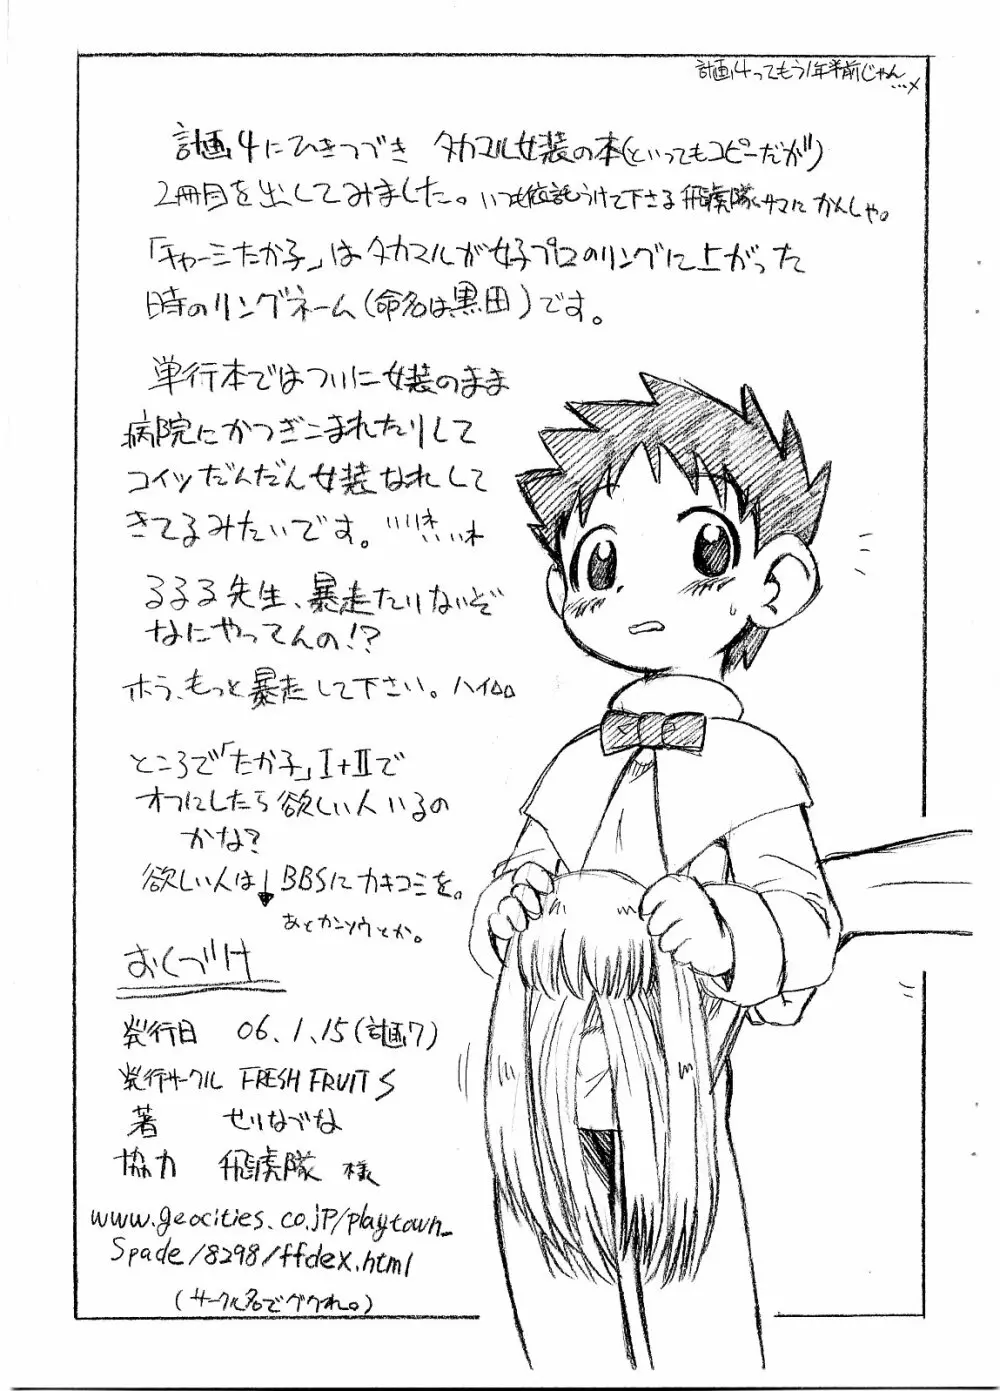 計画4ってもう1年半前じゃん…×
計画4にひきつづき タカマル女装の本(といってもコピーだが)
2冊目を出してみました。いつも依託うけて下さる飛虎隊サマに かんしゃ。
「チャーミたか子」はタカマルが女子プロのリングに上がった
時のリングネーム(命名は黒田)です。
単行本ではついに女装のまま
病院にかつぎこまれたりして
コイツだんだん女装なれして
きてるみたいです。
るるる先生、暴走たりないぞ
なにやってんの!?
ホラ、もっと暴走して下さい。ハイ
ところで「たか子」I+IIで
オフにしたら欲しい人いるの
かな?
欲しい人は↓BBSにカキコミを。
あとカンソウとか。
おくづけ
発行日 06.1.15(計画7)
発行サークル FRESH FRUITS
著 せりなずな
協力 飛虎隊 様
www.geocities.co.jp/playtown_
Spade/8298/ffdex.html
(サークル名でググれ。)